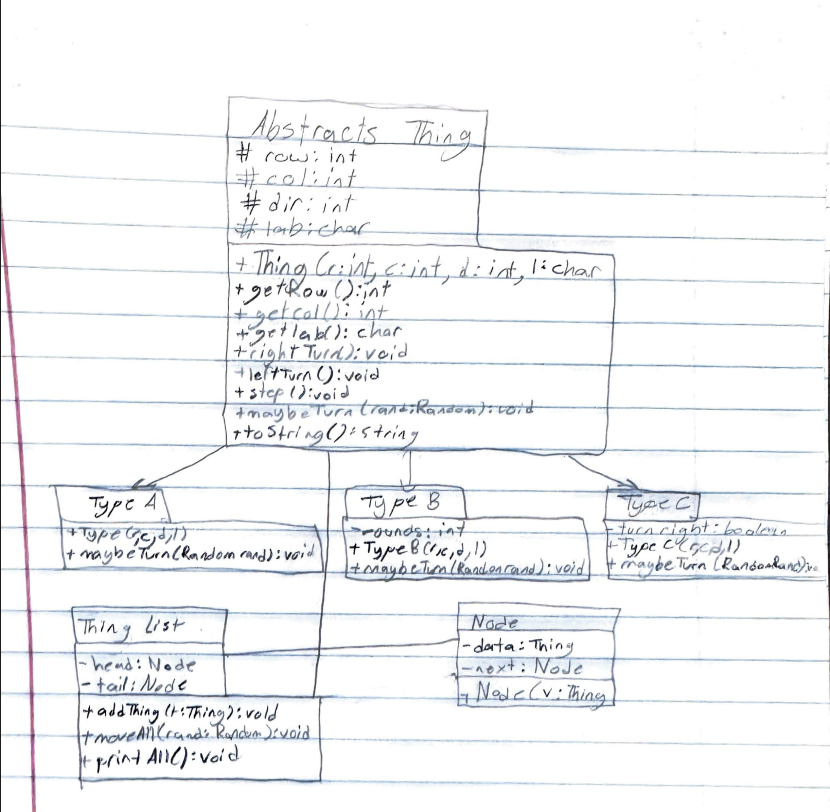 Abstracts Thing
# row: int
# col: int
# dir: int
# lab: char
+ Thing (r: int, c: int, d: int, l: char
+ getRow (): int
+ getcol(): int
+ getlab(): char
+ rightTurn(): void
+ leftTurn(): void
+ step (): void
+ maybeTurn (rand: Random): void
+ toString(): String
Type A
+ Type(r,c,d,l)
+ maybeTurn(Random rand): void
Type B
- rounds: int
+ TypeB(r,c,d,l)
+ maybeTurn(Random rand): void
Type C
- turn right: boolean
+ Type C (r,c,d,l)
+ maybeTurn (Random Rand): vo
Thing List
- head: Node
- tail: Node
+ addThing (t: Thing): void
+ moveAll(rand: Random): void
+ print All(): void
Node
- data: Thing
- next: Node
+ Node(v: Thing